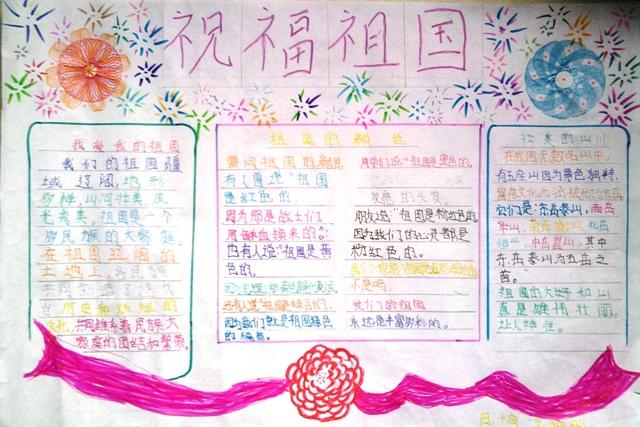 祝福祖国
我爱我的祖国
我们的祖国疆
域辽阔,地形
多样,山河壮美,风
光秀美,祖国是一个
多民族的大家庭。
在祖国辽阔的
土地上,各民族
共同创造了悠久
的历史和灿烂的
文化,共同维系着民族大
家庭的团结和繁荣。
祖国的颜色
要问祖国的颜色
有人会说:“祖国
是红色的,
因为那是战士们
用鲜血换来的。
也有人说“祖国是黄
色的,
还有人说“祖国是绿色的,
因为我们就是祖国绿色
的
同学们说:“祖国是黑色的,
发亮的头发。
朋友说:“祖国是粉红色的
因为我们的心灵都是
粉红色的。
不是吗,
我们的祖国
永远是丰富多彩的。
壮美的山川
在我国无数名山中
有五座山因为景色独特,
它们是:东岳泰山,西岳
华山,南岳衡山,北岳
恒山,中岳嵩山,其中
东岳泰山为五岳之
首。
祖国的大好河山
真是雄伟壮丽,
让人神往。